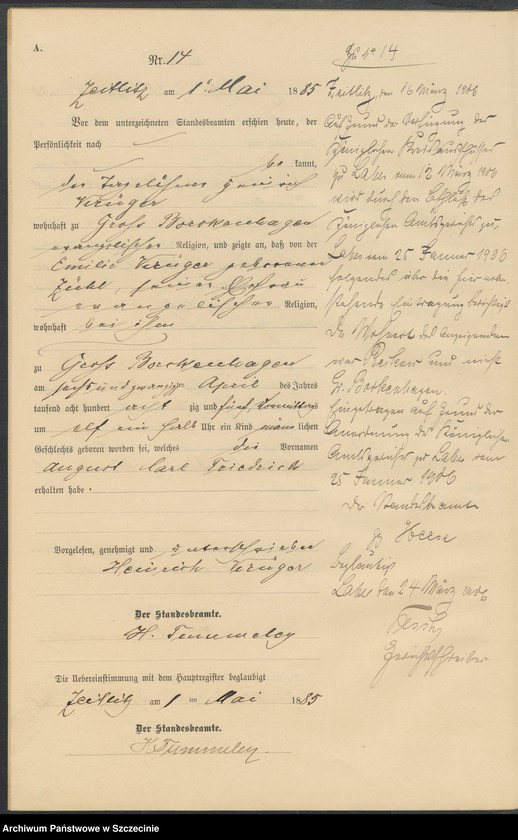 A.
Nr. 14
Zeitlitz am 1ten Mai 1885
Vor dem unterzeichneten Standesbeamten erschien heute, der
Persönlichkeit nach
bekannt,
der Heinrich
Krüger
wohnhaft zu Gross Borckenhagen
evangelischer Religion, und zeigte an, daß von der
Emilie Krüger geborenen
Zühl, seiner Ehefrau
evangelischer Religion,
wohnhaft bei ihm
zu Gross Borckenhagen
am sechsundzwanzigsten April des Jahres
tausend acht hundert achtzig und fünf Vormittags
um elf ein halb Uhr ein Kind männlichen
Geschlechts geboren worden sei, welches die Vornamen
August Carl Friedrich
erhalten habe.
Vorgelesen, genehmigt und unterschrieben
Heinrich Krüger
Der Standesbeamte.
H. Tummeley
Die Uebereinstimmung mit dem Hauptregister beglaubigt
Zeitlitz am 1ten Mai 1885
Der Standesbeamte.
H. Tummeley.
Zu No 14
Zeitlitz, den 16 März 1906
Auf Grund der Verfügung des
Königlichen
zu Labes vom 12 März 1906
wird durch den Beschluß des
Königlichen Amtsgerichts zu
Labes vom 25 Januar 1906
folgendes über die hierneben
stehende Eintragung berichtigt
Der Wohnort des Anzeigenden
war und nicht
Gr. Borkenhagen.
Eingetragen auf Grund der
Anordnung des Königlichen
Amtsgerichts zu Labes vom
25 Januar 1906
Der Standesbeamte
gez Heese
Beglaubigt
Labes den 24 März 1906
Gerichtsschreiber
Archiwum Państwowe w Szczecinie